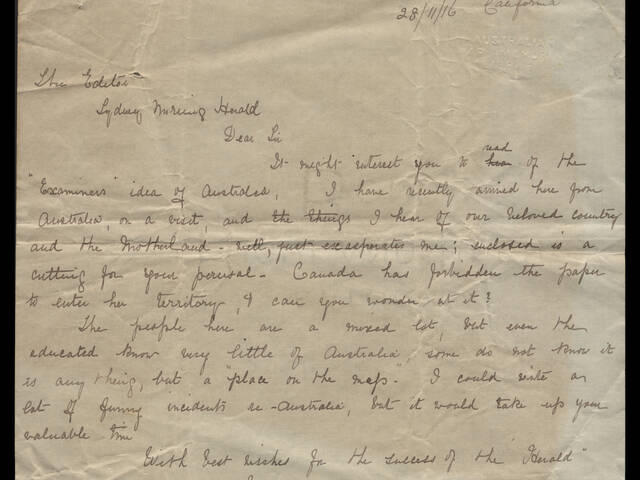 California
28/11/16
The Editor
Sydney Morning Herald
Dear Sir
It might interest you to read hear of the
"Examiners" idea of Australia, I have recently arrived here from
Australia, on a visit, and the things I hear of our beloved country
and the Motherland - well, just exasperates me; enclosed is a
cutting for your perusal - Canada has forbidden the paper
to enter her territory, & can you wonder at it?
The people here are a mixed lot, but even the
educated know very little of Australia, some do not know it
is any thing, but a "place on the map." I could write a
lot of funny incidents re-Australia, but it would take up your
valuable time
With best wishes for the success of the Herald"